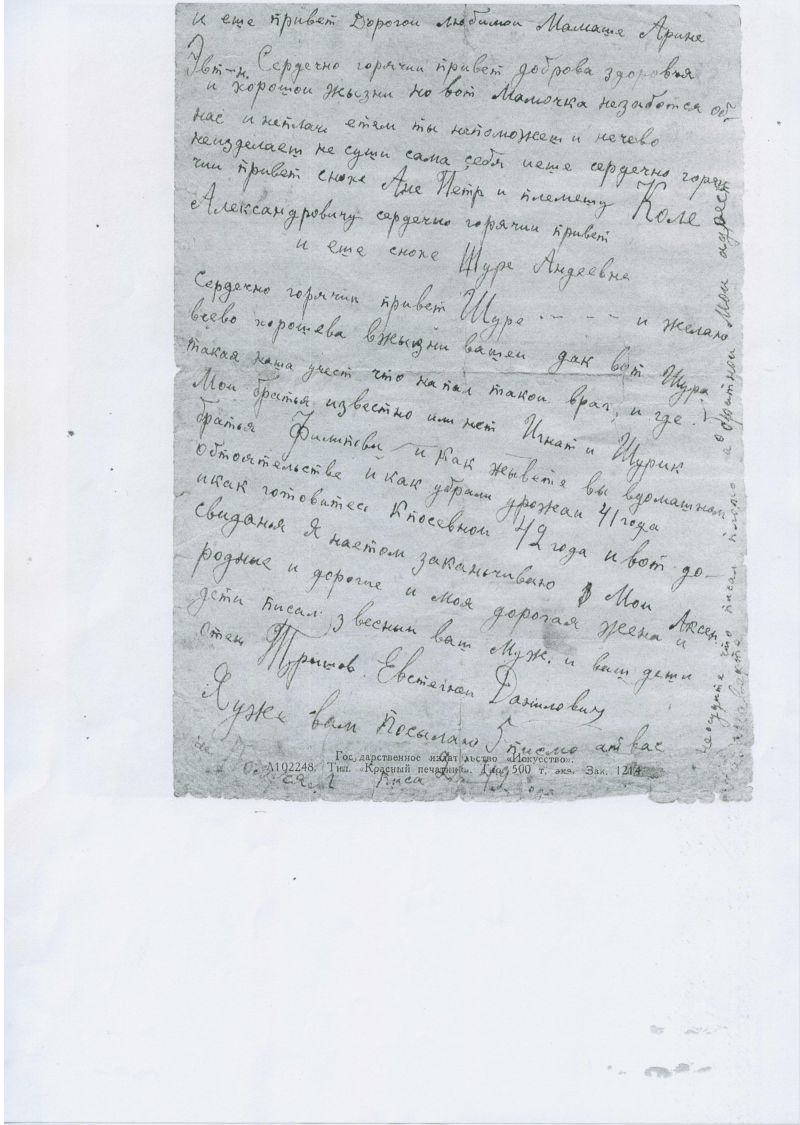 и еще привет Дорогои любимои Мамаше Арине
Эвт-н. Сердечно горячии привет доброва здоровья
и хорошои жызни но вот Мамочка незаботся об
нас и неплачь етем ты непоможеш и нечево
неизделаеш не суши сама себя иеше сердечно горя
чии привет снохе Ане Петр и племешу Коле
Александровичу сердечно горячии привет
и еше снохе Шуре Андеевне
Сердечно горячии привет Шуре - - - - и желаю
всево хорошева вжызни вашеи дак вот Шура
такая наша учест что напал такои враг, и где
Мои братья известно или нет Игнат и Шурик
братья Филипови и как жывете вы вдомашнем
обтоятельстве и как убрали урожаи 41 года
икак готовитесь Кпосевнои 42 года и вот до-
свиданья Я наетом заканьчиваю Мои
родные и дорогие и моя дорогая жена и Аксен
дети писал ваш Муж. и ваш дети
Евстегнеи Данилович
Я уже вам Посылаю 5 писмо ат вас
Государственное издательство «Искусство».
А102248. Тип. «Красный печатник». Тир. 500 т. экз. Зак. 1214
что писал писмо Мои адрест